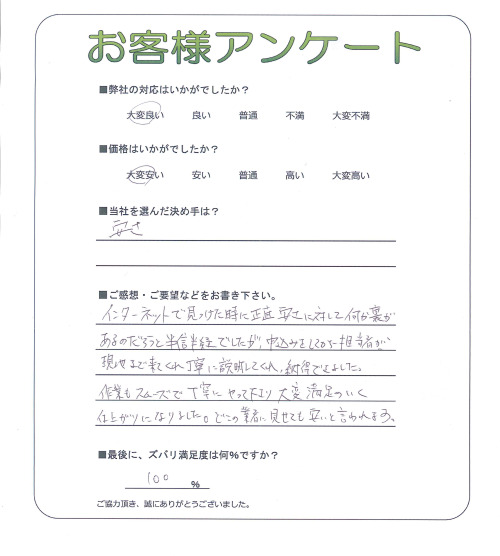 お客様アンケート
■弊社の対応はいかがでしたか？
大変良い 良い 普通 不満 大変不満
■価格はいかがでしたか？
大変安い 安い 普通 高い 大変高い
■当社を選んだ決め手は？
安さ
■ご感想・ご要望などをお書き下さい。
インターネットで見つけた時に正直安さに対して何か裏が
あるのだろうと半信半疑でしたが、申込みをしたら担当者が、
現地まで来てくれ丁寧に説明してくれ、納得できました。
作業もスムーズで丁寧にやって下さり大変満足のいく
仕上がりになりました。どこの業者に見せても安いと言われる
■最後に、ズバリ満足度は何％ですか？
100 ％
ご協力頂き、誠にありがとうございました。